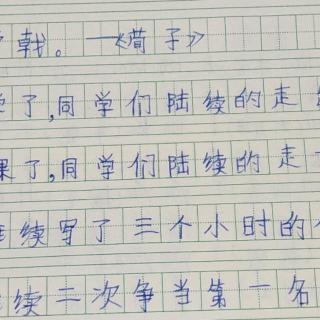 戟。—《荀子》
了,同学们陆续的走
课了,同学们陆续的走
续写了三个小时的
续二次争当第一名